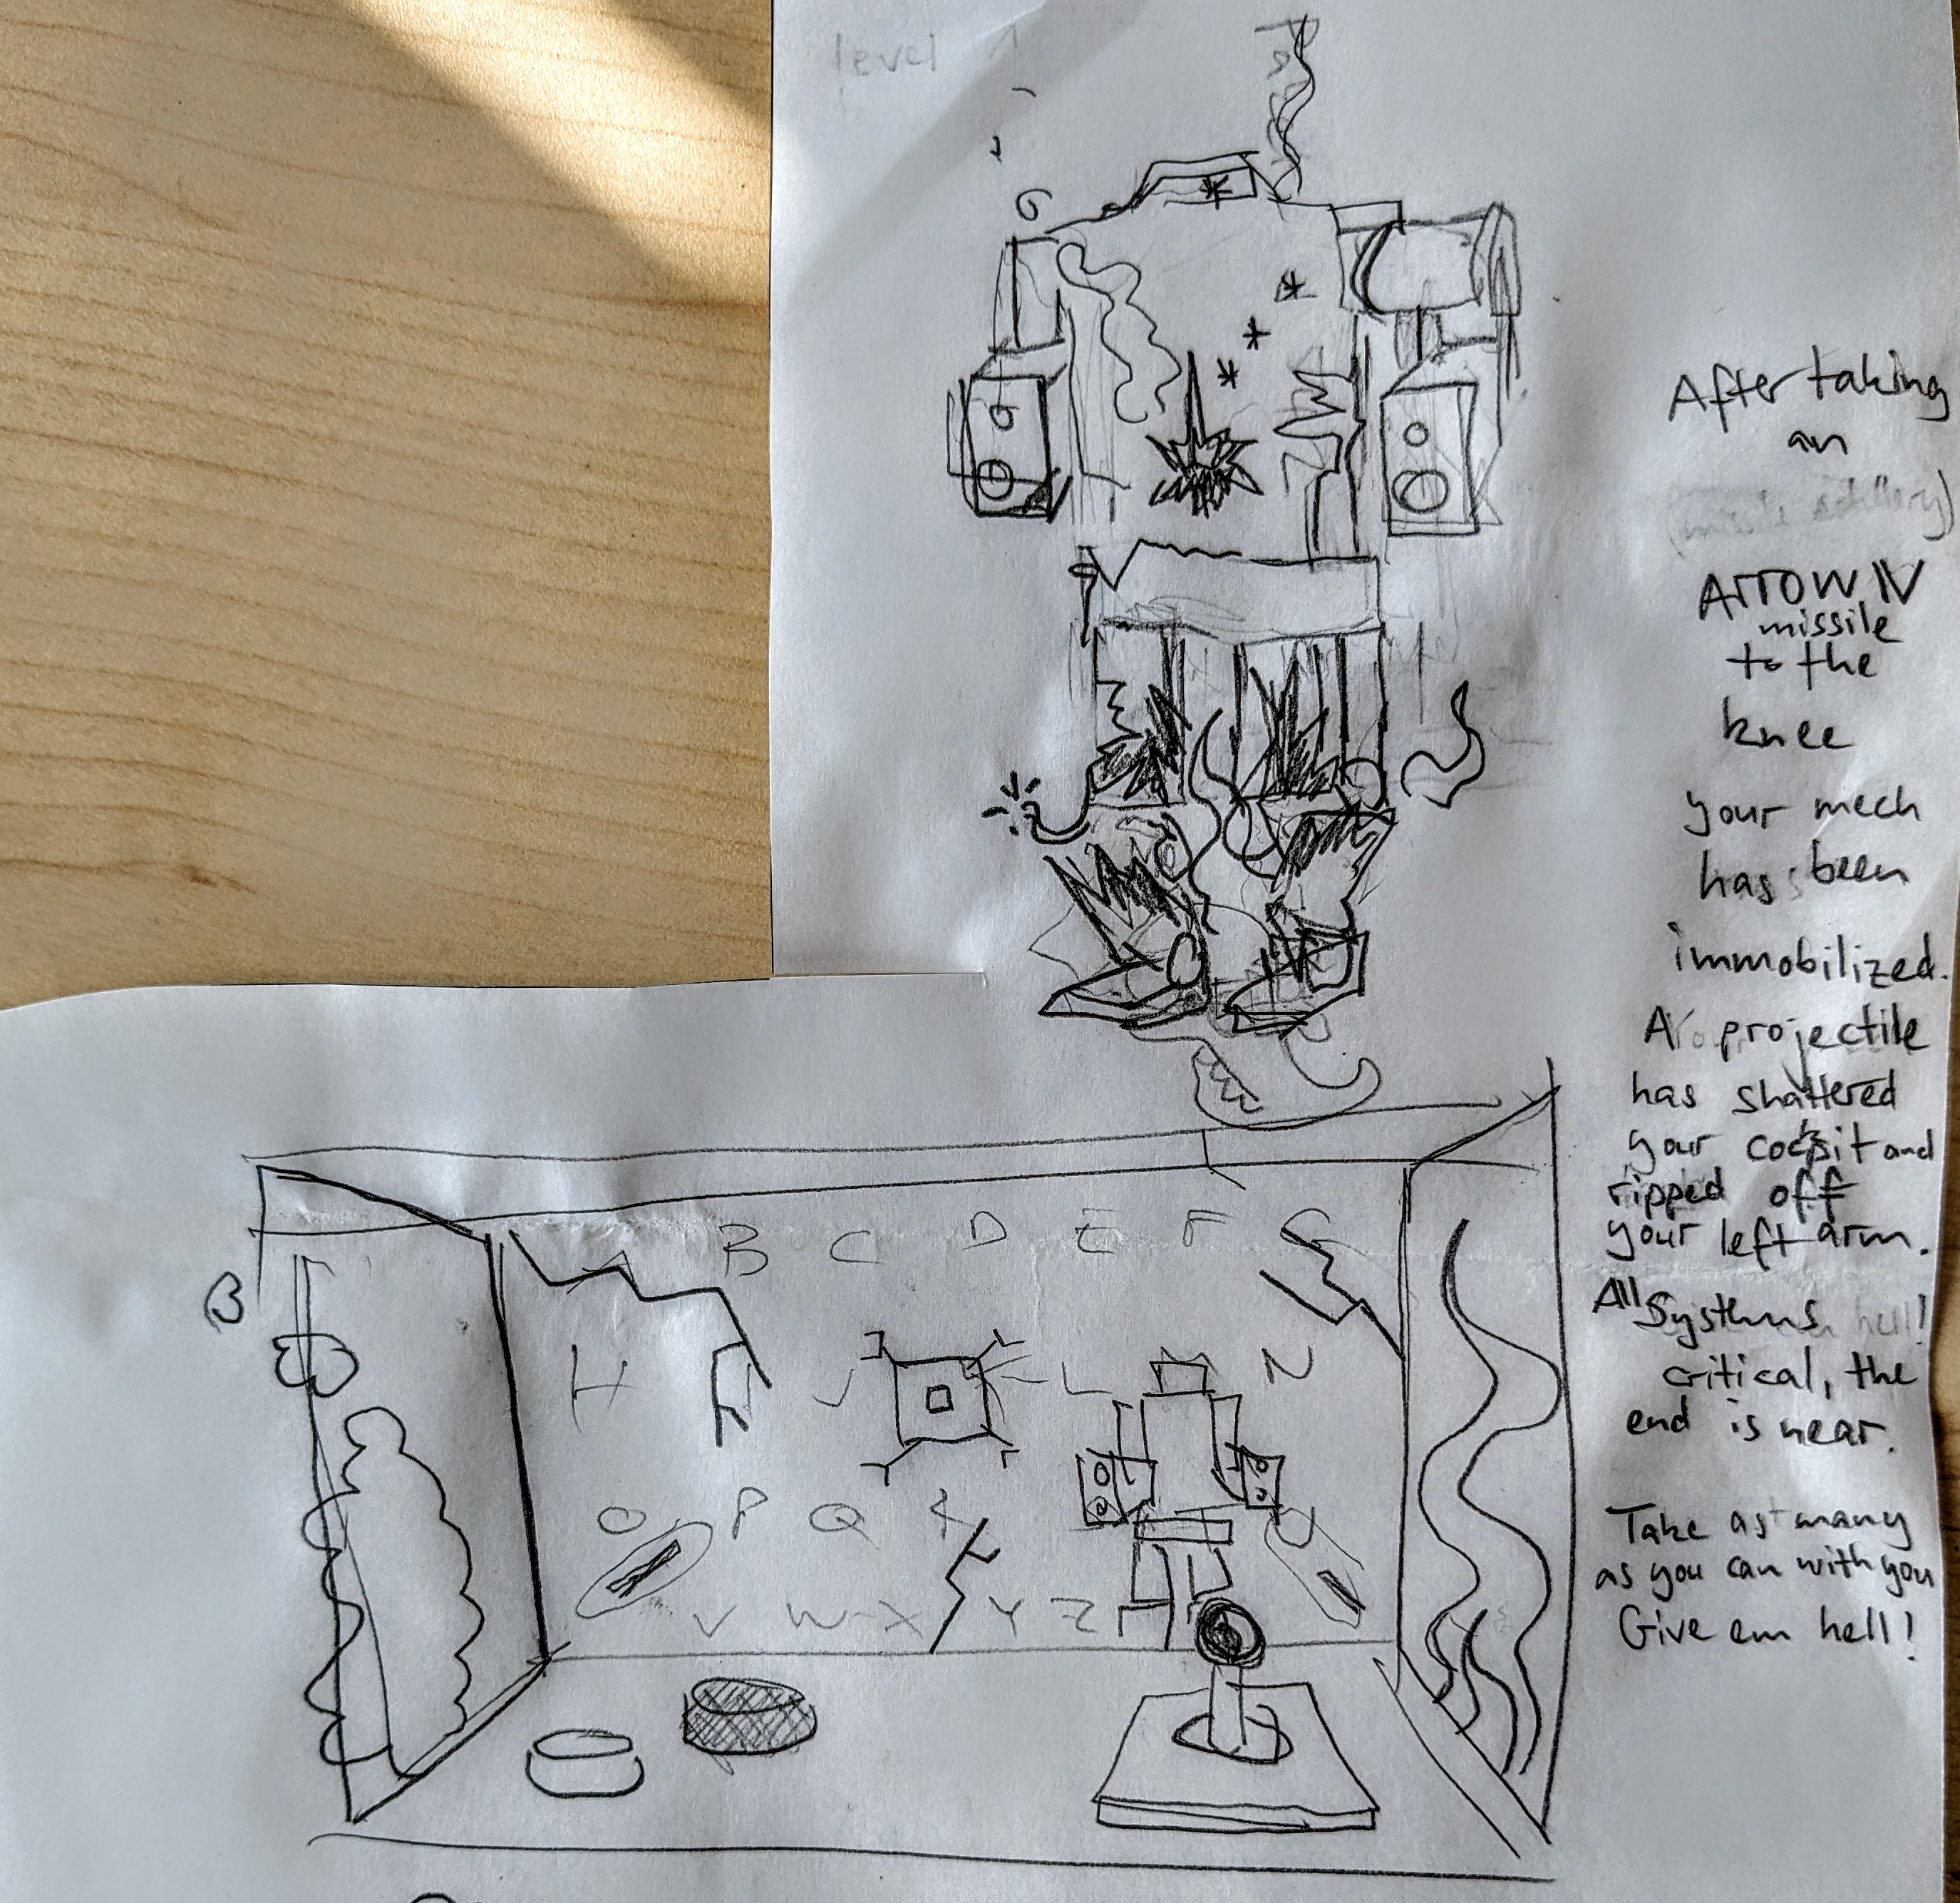 level 1
After taking
an
Arrow IV
missile
to the
knee
your mech
has been
immobilized.
A projectile
has shattered
your cockpit and
ripped off
your left arm.
All Systems hell!
critical, the
end is near.
Take as many
as you can with you
Give em hell!
A B C D E F G
B
H J L N
O P Q R U
V W X Y Z